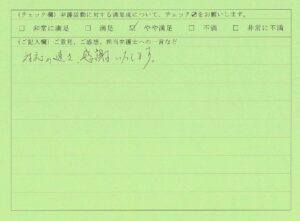 (チェック欄) 弁護活動に対する満足度について、チェック☑をお願いします。
□ 非常に満足 □ 満足 ☑ やや満足 □ 不満 □ 非常に不満
(ご記入欄) ご意見、ご感想、担当弁護士への一言など
感謝いたします。